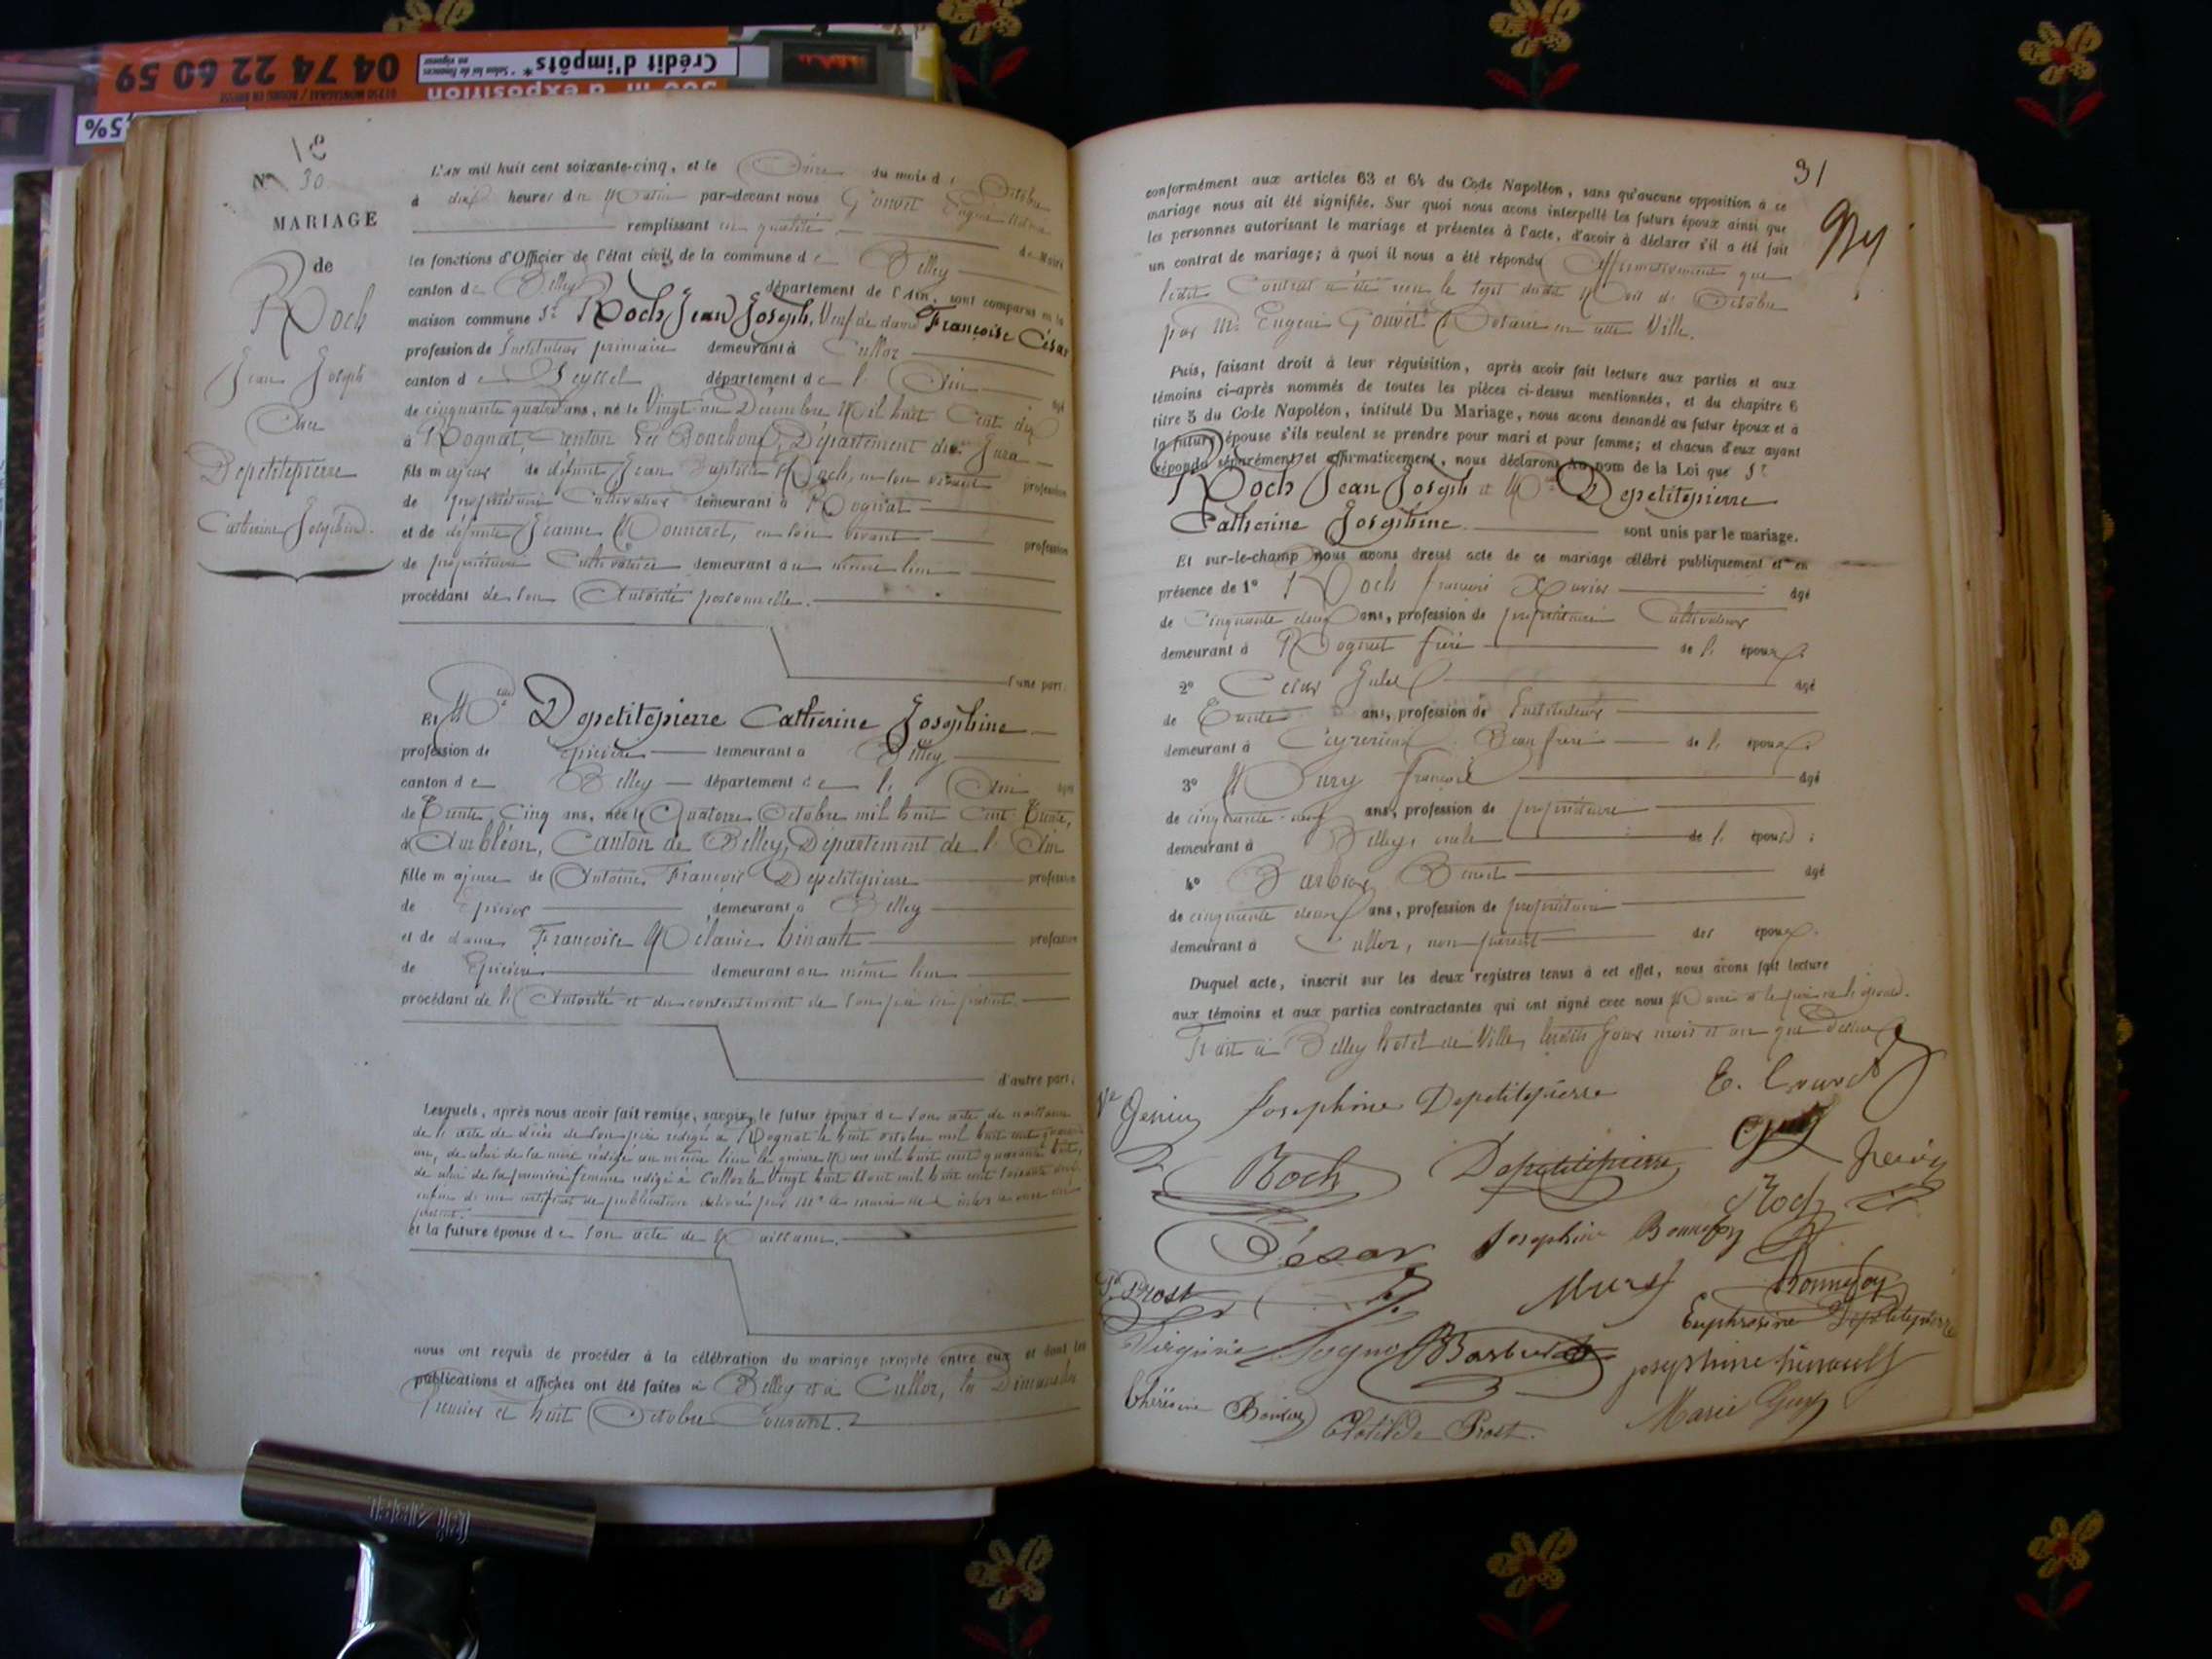 04 74 22 60 59
01250 MONTAGNAT / BOURG EN BRESSE
d'exposition
Crédit d'impôts*
*Selon loi de finances
en vigueur
5%
18
N° 30.
MARIAGE
de
Roch
Jean Joseph
Avec
Depetitepierre
Catherine Joséphine.
L'AN mil huit cent soixante-cinq, et le Onze du mois d' Octobre
à dix heures du Matin par-devant nous Gouvet Eugène
remplissant en qualité de Maire
les fonctions d'Officier de l'état civil, de la commune de Belley
canton de Belley département de l'Ain, sont comparus en la
maison commune Sr Roch Jean Joseph, Veuf de dame Françoise César
profession de Instituteur primaire demeurant à Culloz
canton de Seyssel département de l'Ain âgé
de cinquante quatre ans, né le Vingt un Décembre Mil huit Cent dix
à Rognat, Canton de Bouchoux, Département du Jura
fils majeur de défunt Jean Baptiste Roch, en son vivant profession
de propriétaire Cultivateur demeurant à Rognat
et de défunte Jeanne Monneret, en son vivant profession
de propriétaire Cultivatrice demeurant au même lieu
procédant de son Autorité personnelle.
d'une part.
Et Mlle Depetitepierre Catherine Joséphine
profession de Epicière demeurant à Belley
canton de Belley département de l'Ain âgée
de Trente Cinq ans, née le Quatorze Octobre mil huit Cent Trente,
à Ambléon, Canton de Belley, Département de l'Ain
fille majeure de Antoine François Depetitepierre profession
de Epicier demeurant à Belley
et de dame Françoise Mélanie hinault profession
de Epicière demeurant au même lieu
procédant de l'Autorité et du consentement de son père ici présent.
d'autre part.
Lesquels, après nous avoir fait remise, savoir, le futur époux de son acte de naissance
de l'acte de décès de son père rédigé à Rognat le huit octobre mil huit cent quarante
un, de celui de sa mère rédigé au même lieu le quinze Mars mil huit cent quarante huit,
de celui de sa première femme rédigé à Culloz le Vingt huit Août mil huit cent soixante
enfin d'un certificat de publication délivré par Mr le maire de
présent.
et la future épouse de son acte de Naissance.
nous ont requis de procéder à la célébration du mariage projeté entre eux et dont les
publications et affiches ont été faites à Belley et à Culloz, les Dimanches
Premier et huit Octobre Courant.
31
conformément aux articles 63 et 64 du Code Napoléon, sans qu'aucune opposition à ce
mariage nous ait été signifiée. Sur quoi nous avons interpellé les futurs époux ainsi que
les personnes autorisant le mariage et présentes à l'acte, d'avoir à déclarer s'il a été fait
un contrat de mariage; à quoi il nous a été répondu Affirmativement que
ledit Contrat a été reçu le Sept dudit Mois d'Octobre
par Mr. Eugène Gouvet Notaire en cette Ville.
Puis, faisant droit à leur réquisition, après avoir fait lecture aux parties et aux
témoins ci-après nommés de toutes les pièces ci-dessus mentionnées, et du chapitre 6
titre 5 du Code Napoléon, intitulé Du Mariage, nous avons demandé au futur époux et à
la future épouse s'ils veulent se prendre pour mari et pour femme; et chacun d'eux ayant
répondu séparément et affirmativement, nous déclarons au nom de la Loi que Sr
Roch Jean Joseph et Mlle Depetitepierre
Catherine Joséphine sont unis par le mariage.
Et sur-le-champ nous avons dressé acte de ce mariage célébré publiquement et en
présence de 1° Roch François Xavier âgé
de Cinquante deux ans, profession de propriétaire Cultivateur
demeurant à Rognat frère de l'époux
2° César Jules âgé
de Trente ans, profession de Instituteur
demeurant à Ceyzerieu Beau frère de l'époux
3° Mury François âgé
de cinquante neuf ans, profession de propriétaire
demeurant à Belley, oncle de l'épouse;
4° Barbier Benoit âgé
de cinquante deux ans, profession de propriétaire
demeurant à Culloz, non parent des époux.
Duquel acte, inscrit sur les deux registres tenus à cet effet, nous avons fait lecture
aux témoins et aux parties contractantes qui ont signé avec nous Maire et le père de l'épouse.
Fait à Belley hotel de Ville, lesdits Jour mois et an que dessus
Josephine Depetitepierre
Roch Depetitepierre
Roch
César Josephine Bonnefoy
Prost Mury Bonnefoy
Euphrosine Depetitepierre
Virginie
josephine hinault
Clotilde Prost. Marie Guy